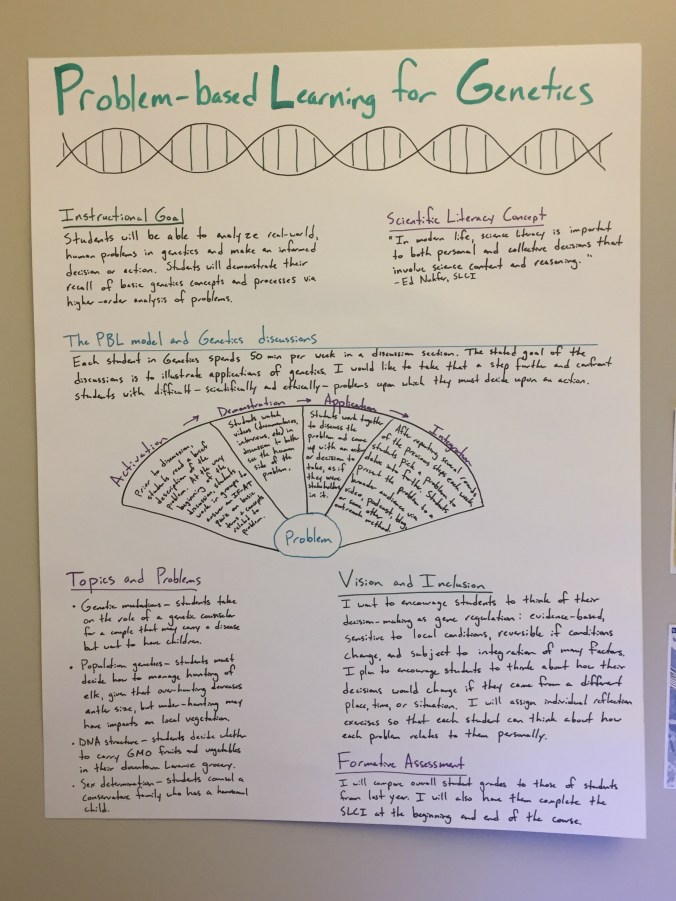 Problem-based Learning for Genetics
Instructional Goal
Students will be able to analyze real-world,
human problems in genetics and make an informed
decision or action. Students will demonstrate their
recall of basic genetics concepts and processes via
higher-order analysis of problems.
Scientific Literacy Concept
"In modern life, science literacy is important
to both personal and collective decisions that
involve science content and reasoning."
-Ed Nuhfer, SLCI
The PBL model and Genetics discussions
Each student in Genetics spends 50 min per week in a discussion section. The stated goal of the
discussions is to illustrate applications of genetics. I would like to take that a step further and confront
students with difficult - scientifically and ethically - problems upon which they must decide upon an action.
Activation → Demonstration → Application → Integration
Prior to discussion,
students read a brief
description of the
problem. At the very
beginning of the
discussion, students
work in groups to
answer an IF-AT
quiz on basic
terms & concepts
related to problem.
Students watch
videos (documentaries,
interviews, etc) in
discussion to both
see the human
side of the
problem.
Students work together
to discuss the
problem and come
up with an action
or decision to
take, as if
they were
stakeholders
in it.
After repeating several rounds
of the previous steps each week,
students pick a problem to
delve into further. Students
present the problem to a
broader audience via
video, podcast, blog,
or some other
outreach method.
Problem
Topics and Problems
• Genetic mutations - students take
on the role of a genetic counselor
for a couple that may carry a disease
but want to have children.
• Population genetics - students must
decide how to manage hunting of
elk, given that over-hunting decreases
antler size, but under-hunting may
have impacts on local vegetation.
• DNA structure - students decide whether
to carry GMO fruits and vegetables
in their downtown Laramie grocery.
• Sex determination - students counsel a
conservative family who has a
child.
Vision and Inclusion
I want to encourage students to think of their
decision-making as gene regulation: evidence-based,
sensitive to local conditions, reversible if conditions
change, and subject to integration of many factors.
I plan to encourage students to think about how their
decisions would change if they came from a different
place, time, or situation. I will assign individual reflection
exercises so that each student can think about how
each problem relates to them personally.
Formative Assessment
I will compare overall student grades to those of students
from last year. I will also have them complete the
SLCI at the beginning and end of the course.